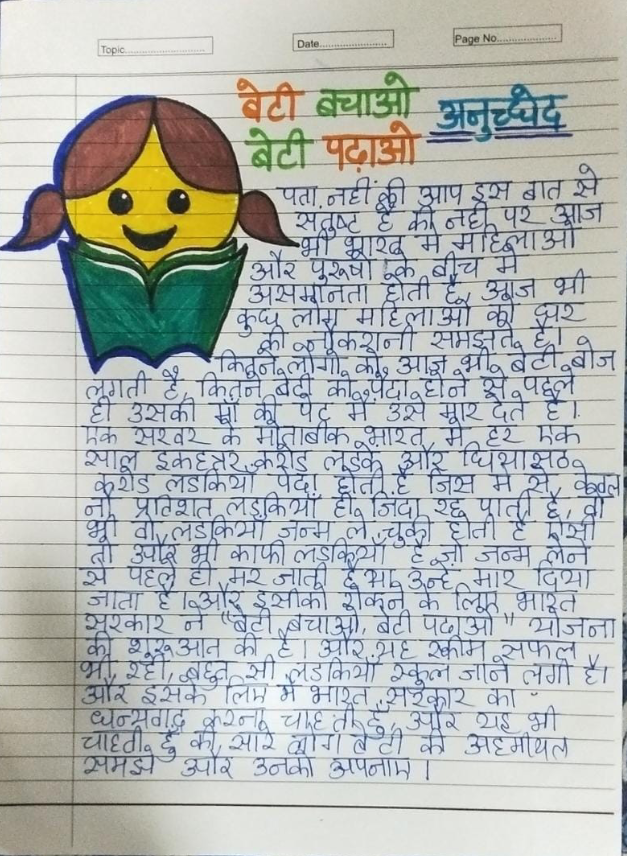 Topic........................
Date........................
Page No...............
बेटी बचाओ
बेटी पढ़ाओ
अनुच्छेद
पता नहीं की आप इस बात से
सतुष्ट है की नही पर आज
भी भारत में महिलाओ
और पुरुषो के बीच मे
असमानता होती है, आज भी
कुछ लोग महिलाओं को घर
की नौकरानी समझते है।
कितने लोगो को आज भी बेटी बोज
लगती है, कितने बेटी को पैदा होने से पहले
ही उसकी माँ की पेट में उसे मार देते है।
एक सरवर के मोताबीक भारत में हर एक
साल इकहत्तर करोड लडके और घिसासठ
करोड लडकियाँ पैदा होती है जिस में से, केवल
नौ प्रतिशत लडकियाँ ही जिंदा रह पाती है, वो
भी वो लडकियाँ जन्म ले चुकी होती है ऐसी
तो और भी काफी लडकियाँ है जो जन्म लेने
से पहले ही मर जाती है या उन्हे मार दिया
जाता है। और इसीको रोकने के लिए भारत
सरकार ने "बेटी बचाओ, बेटी पढाओ" योजना
की शुरूआत की है। और यह स्कीम सफल
भी रही, बहुत सी लडकियाँ स्कुल जाने लगी है।
और इसके लिए मै भारत सरकार का
धन्यवाद करना चाहती हुँ, और यह भी
चाहती हु की सारे लोग बेटी की अहमीयत
समझे और उनको अपनाए।